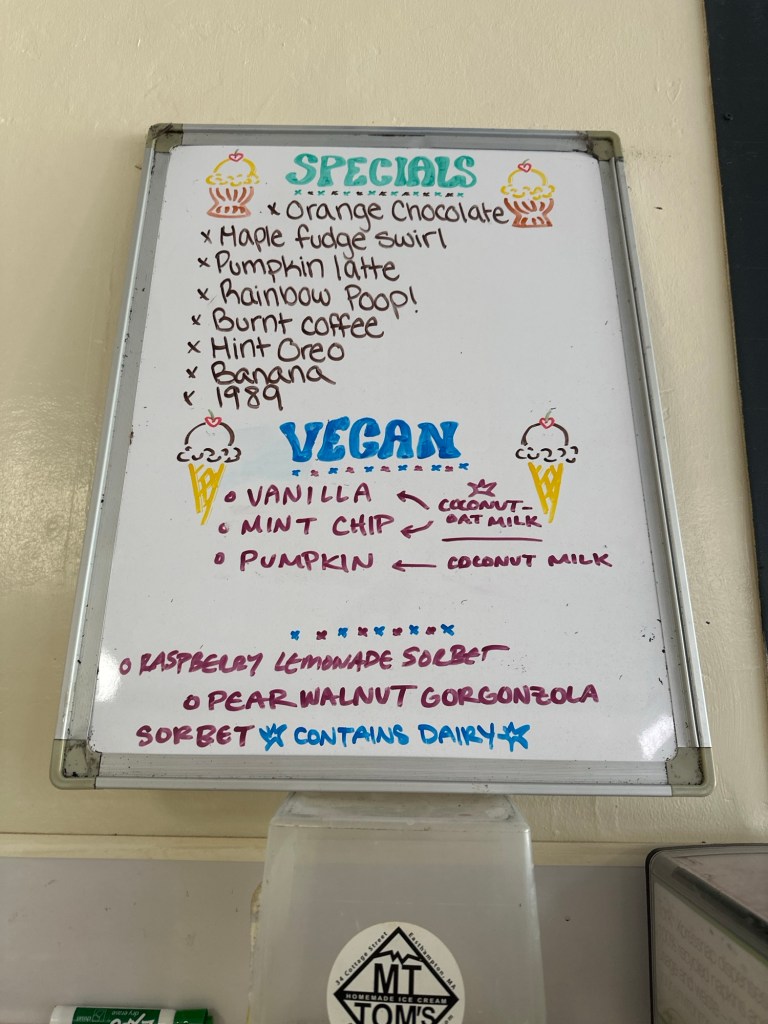 SPECIALS
x Orange Chocolate
x Maple fudge swirl
x Pumpkin latte
x Rainbow Poop!
x Burnt coffee
x Mint Oreo
x Banana
x 1989
VEGAN
• VANILLA
COCONUT-
OAT MILK
• MINT CHIP
• PUMPKIN ← COCONUT MILK
o RASPBERRY LEMONADE SORBET
o PEAR WALNUT GORGONZOLA
SORBET ☆ CONTAINS DAIRY ☆
34 Cottage Street Easthampton, MA
MT
HOMEMADE ICE CREAM
TOM'S